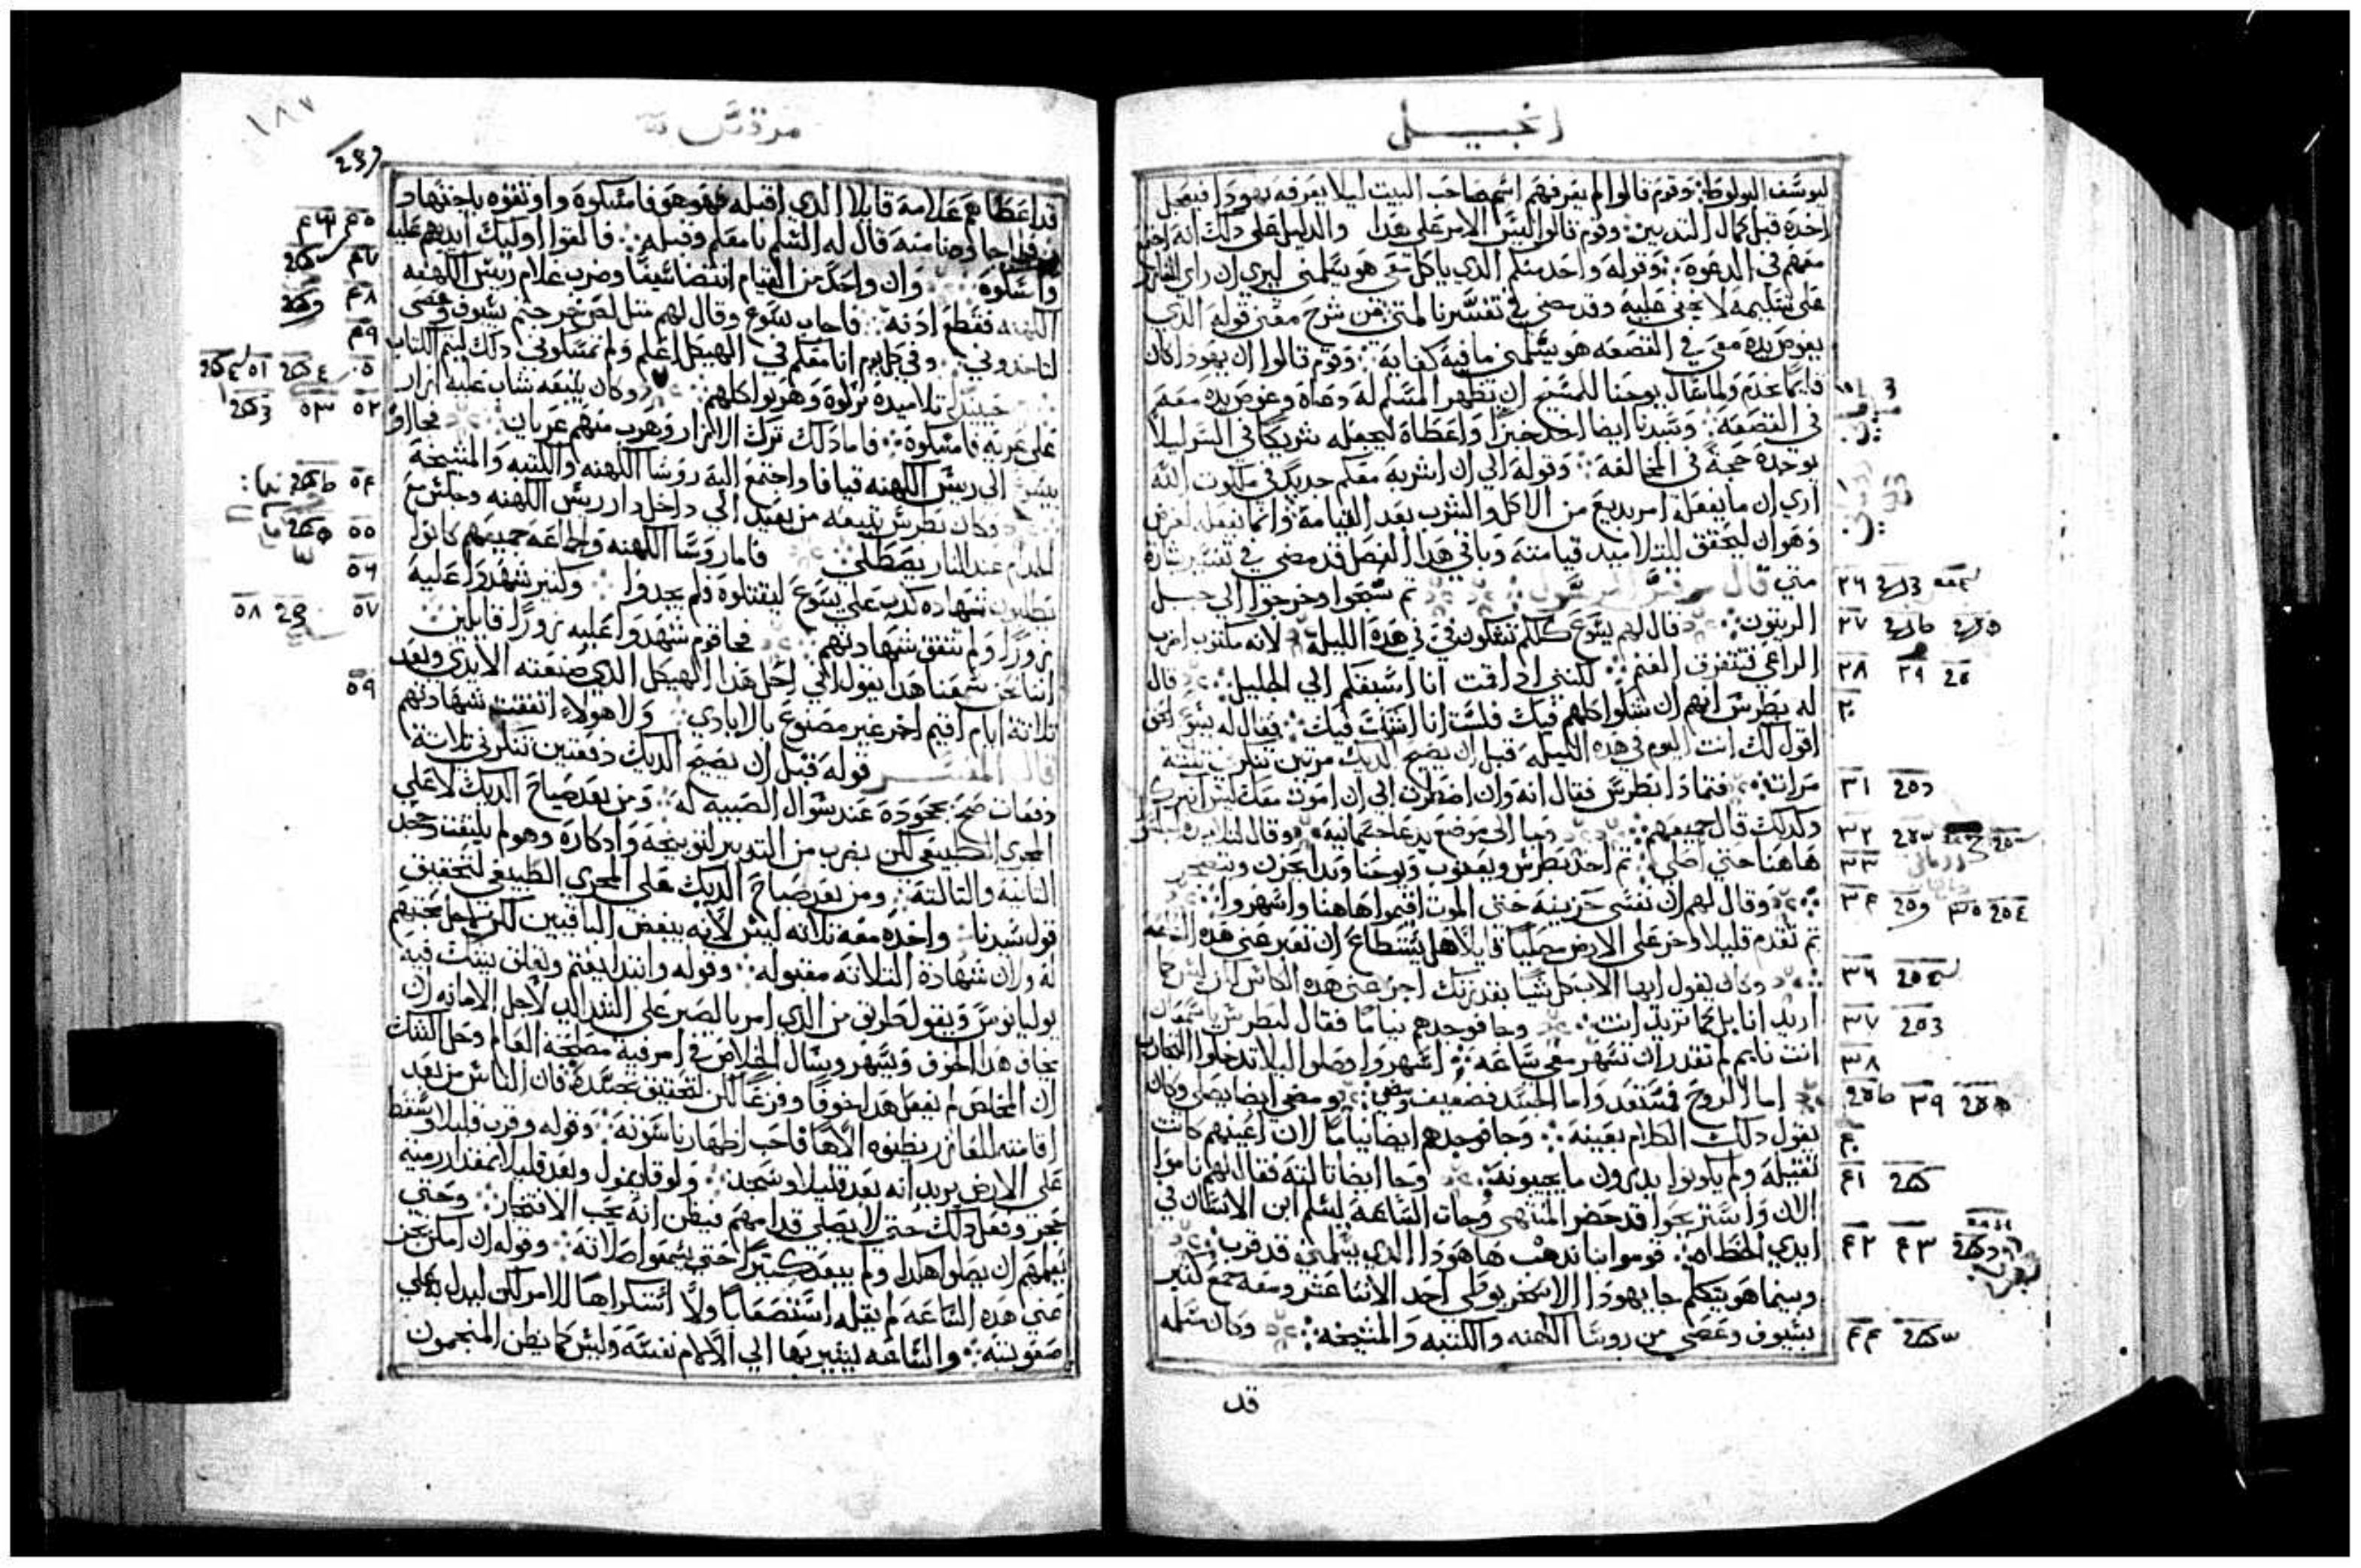 انجيل
ليوسف البولوطا وقوم قالوا لم يعرفهم اسم صاحب البيت ليلا يعرفه يهودا فيعجل
اخده قبل كمال التدبير وقوم قالوا ليس الامر علي هدا والدليل علي دلك انه
معهم في الدعوة وقوله واحد منكم الدي ياكل معي هو يسلمني ليري ان راي
علي تسليمه لا يخفي عليه وقد مضي في تفسيرنا لمتي من شرح معني قوله الدي
يغوص يده معي في القصعه هو يسلمني ما فيه كفايه وقوم قالوا ان يهودا كان
للمسيح ان يظهر المسلم له دعاه وغوص يده معه
في القصعه وسيدنا ايضا اخد خبزا واعطاه ليجعله شريكا في السر ليلا
يوجده حجة في المخالفة وقوله الي ان اشربه معكم جديد في ملكوت الله
اري ان ما يفعله امر بديع من الاكل والشرب بعد القيامة وانما يفعله لعرض
وهو ان ليحقق للتلاميد قيامته وباقي هدا الفصل قد مضي في تفسير بشارة
متي قال مرقس الرسول تم سبحوا وخرجوا الي جبل
الزيتون قال لهم يسوع كلكم تشكون في في هده الليلة لانه مكتوب اضرب
الراعي فتتفرق الغنم لكنني ادا قمت انا اسبقكم الي الجليل قال
له بطرس انهم ان شكوا كلهم فيك فلست انا اشك فيك فقال له يسوع الحق
اقول لك انت اليوم في هده الليله قبل ان يصيح الديك مرتين تنكرني تلته
مرات فتمادا بطرس فقال انه وان اضطرت الي ان اموت معك ليس انكرك
وكدلك قال جميعهم وجا الي موضع يدعا جتمانية وقال لتلاميده اجلسوا
هاهنا حتي اصلي تم اخد بطرس ويعقوب ويوحنا وبدا يحزن ويتضجر
وقال لهم ان نفسي حزينة حتي الموت اقيموا هاهنا واسهروا
تم تقدم قليلا وخر علي الارض مصليا قايلا هل يستطاع ان تعبر عني هده الساعه
وكان يقول ايها الاب كل شيا بقدرتك اجز عني هده الكاس لكن ليس كما
اريد انا بل كما تريد انت وجا فوجدهم نياما فقال لبطرس يا شمعان
انت نايم لم تقدر ان تسهر معي ساعه اسهروا وصلوا ليلا تدخلوا التجارب
اما الروح فمستعد واما الجسد فضعيف ومضي ايضا يصلي وكان
يقول دلك الكلام بعينه وجا فوجدهم ايضا نياما لان اعينهم كانت
تقيلة ولم يكونوا يدرون ما يجيبونه وجا ايضا تالتة فقال لهم ناموا
الان واستريحوا قد حضر المنتهي وجات الساعة ليسلم ابن الانسان في
ايدي الخطاه قوموا بنا ندهب ها هودا الدي يسلمني قد قرب
وبينما هو يتكلم جا يهودا الاسخريوطي احد الاثنا عشر ومعه جمع كثير
بسيوف وعصي من روسا الكهنه والكتبه والمشيخه وكان مسلمه
قد
٢٦
٢٧
٢٨ ٢٩
٣٠
٣١
٣٢
٣٣
٣٤ ٣٥
٣٦
٣٧
٣٨
٣٩
٤٠
٤١
٤٢ ٤٣
٤٤
مرقس
١٨٧
قد اعطاهم علامة قايلا الدي اقبله فهو هو فامسكوه واوتقوه باجتهاد
جا ودنا منه قال له السلم يا معلم وقبله فالقوا اوليك ايديهم عليه
وامسكوه وان واحد من القيام انتضا سيفا وضرب غلام ريس الكهنه
فقطع ادنه فاجاب يسوع وقال لهم متل لص خرجتم بسيوف وعصي
لتاخدوني وفي كل يوم انا معكم في الهيكل اعلم ولم تمسكوني دلك ليتم الكتاب
حينيد تلاميده تركوه وهربوا كلهم وكان يتبعه شاب عليه ازار
علي عريه فامسكوه فاما دلك ترك الازار وهرب منهم عريان فجاوا
بيسوع الي ريس الكهنه قيافا واجتمع اليه روسا الكهنه والكتبه والمشيخة
وكان بطرس يتبعه من بعيد الي داخل دار ريس الكهنه وجلس مع
الخدام عند النار يصطلي فاما روسا الكهنه والجماعه جميعهم كانوا
يطلبون شهاده كدب علي يسوع ليقتلوه فلم يجدوا وكثير شهدوا عليه
زورا ولم تتفق شهادتهم فجا قوم شهدوا عليه زورا قايلين
اننا نحن سمعنا هدا يقول انني احل هدا الهيكل الدي صنعته الايدي وبعد
تلاتة ايام اقيم اخر غير مصنوع بالايادي ولا هولاء اتفقت شهادتهم
قال المفسر قوله قبل ان يصيح الديك دفعتين تنكرني تلاتة
دفعات صح بجحوده عند سوال الصبيه له ومن بعد صياح الديك لا علي
المجري الطبيعي لكن بضرب من التدبير لتوبيخه وادكاره وهو لم يلتفت وجحد
التانية والتالتة ومن بعد صياح الديك علي المجري الطبيعي لتحقيق
قول سيدنا واخده معه تلاته ليس لانه يبغض الباقيين لكن لاجل محبتهم
له وان شهادة التلاته مقبوله وقوله وابتدا يغتم ويقلق يبكت فيه
يوليانوس ويقول طريق من الدي امر بالصبر علي الشدايد لاجل الامانه ان
يخاف هدا الخوف ويسهر ويسال الخلاص في امر فيه مصلحة العالم وحل الشك
ان المخلص لم يفعل هدا خوفا وفزعا لكن لتحقيق تجسده فان الناس من بعد
اقامته للعازر يظنوه الاها فاحب اظهار ناسوته وقوله وقرب قليلا وسقط
علي الارض يريد انه بعد قليلا وسجد ولوقا يقول وبعد قليلا بمقدار رمية
حجر وفعل دلك حتي لا يصلي قدامهم فيظن انه يحب الافتخار وحتي
يعلمهم ان يصلوا هكدا ولم يبعد كثيرا حتي يسمعوا صلاته وقوله ان امكن تجز
عني هده الساعه لم يقله استضعافا ولا استكراها للامر لكن ليدل به علي
صعوبته والساعه يشير بها الي الالام نفسه وليس كما يظن المنجمون
٤٥ ٤٦
٤٧
٤٨
٤٩
٥٠ ٥١
٥٢ ٥٣
٥٤
٥٥
٥٦
٥٧ ٥٨
٥٩